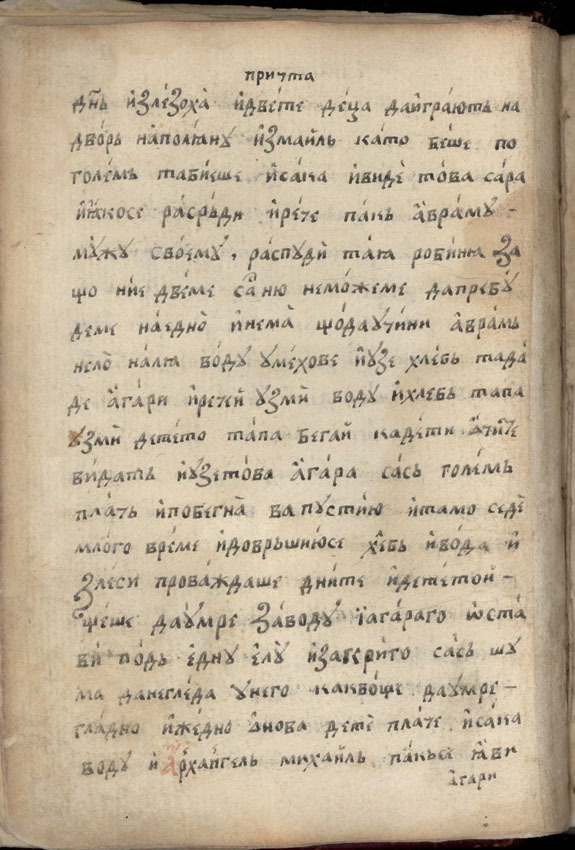 притта
дн҃ь излѣзоха̀ и҆двете деца дайграютъ на
дворь наполяну и҆змаиль като беше по
големь табиеше и҆сака и҆виде това сара
и҆ꙗкосе расръди и҆рече пакь а҆враму
мужу своему, распуди тая робиню за
що ние двеме саⷩ҇ ню неможеме дапребу
деме наедно и҆нема щодаучини а҆врамь
нело налia воду умехове и҆узе хлебь тада
де а҆гари и҆речей узми воду и҆хлебь тапа
узми детето тапа бегай кадети ѻчите
видать и҆узетова а҆гара сась големь
плачь и҆побегна ва пустию и҆тамо седе
млого време и҆довршиюсе хⷧ҇ебь и҆вода и҆
злеси проваждаше дните и҆дететой
щеше даумре заводу і҆агараго ѡста
ви подь е҆дну е҆лу и҆закрито сась шу
ма данегледа унего каквоще даумре
гладно и҆жедно ѻнова дете плаче и҆сака
воду и҆ а҆рхаⷩ҇гель михаиль пакьсе ꙗ҆ви
а҆гари